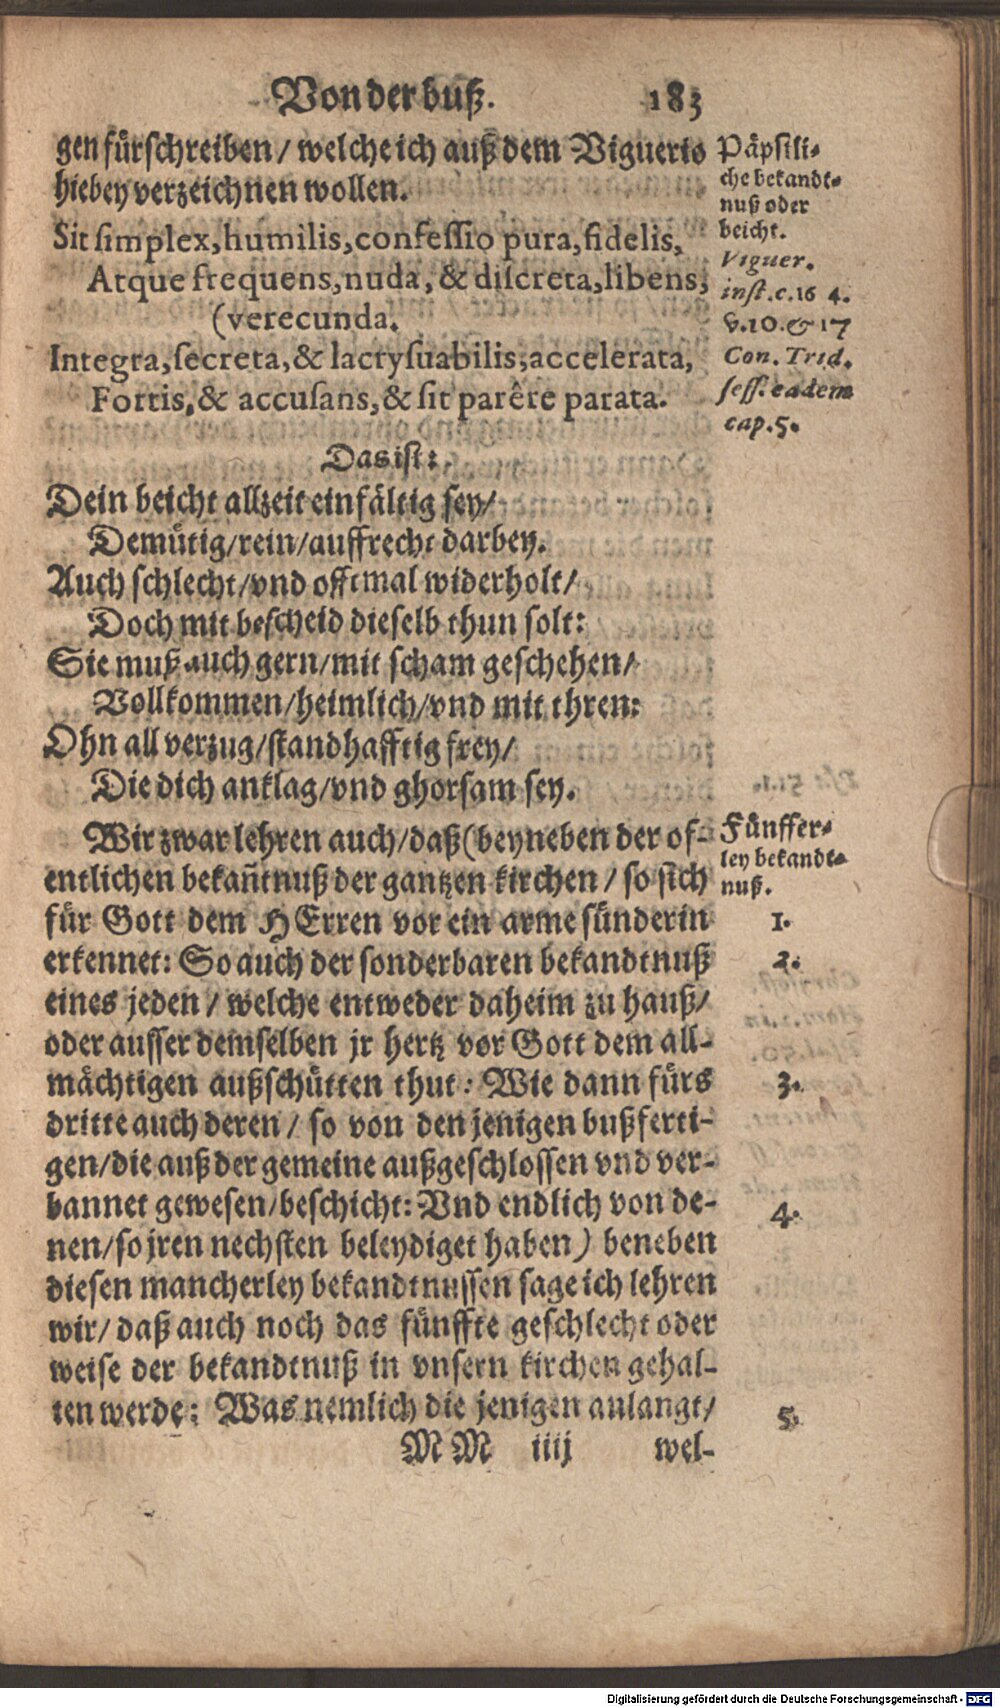 Von der buß. 183
gen fürschreiben / welche ich auß dem Viguerio
hiebey verzeichnen wollen.
Päpstli-
che bekandt-
nuß oder
beicht.
Viguer.
inst. c. 16 4.
v. 10. & 17
Con. Trid.
sess. eadem
cap. 5.
Sit simplex, humilis, confessio pura, fidelis,
Atque frequens, nuda, & discreta, libens,
(verecunda.
Integra, secreta, & lacrysuabilis, accelerata,
Fortis, & accusans, & sit parêre parata.
Das ist:
Dein beicht allzeit einfältig sey/
Demütig/rein/auffrecht darbey.
Auch schlecht/vnd offtmal widerholt/
Doch mit bescheid dieselb thun solt:
Sie muß auch gern/mit scham geschehen/
Vollkommen/heimlich/vnd mit thren:
Ohn all verzug/standhafftig frey/
Die dich anklag/vnd ghorsam sey.
Wir zwar lehren auch/daß (beyneben der of-
entlichen bekañtnuß der gantzen kirchen / so sich
für Gott dem HErren vor ein arme sünderin
erkennet: So auch der sonderbaren bekandtnuß
eines jeden / welche entweder daheim zu hauß/
oder ausser demselben jr hertz vor Gott dem all-
mächtigen außschütten thut: Wie dann fürs
dritte auch deren / so von den jenigen bußferti-
gen/die auß der gemeine außgeschlossen vnd ver-
bannet gewesen/beschicht: Vnd endlich von de-
nen/so jren nechsten beleydiget haben) beneben
diesen mancherley bekandtnussen sage ich lehren
wir/ daß auch noch das fünffte geschlecht oder
weise der bekandtnuß in vnsern kirchen gehal-
ten werde: Was nemlich die jenigen anlangt/
Fünffer-
ley bekandt-
nuß.
1.
2.
3.
4.
5.
MM iiij wel-
Digitalisierung gefördert durch die Deutsche Forschungsgemeinschaft - DFG